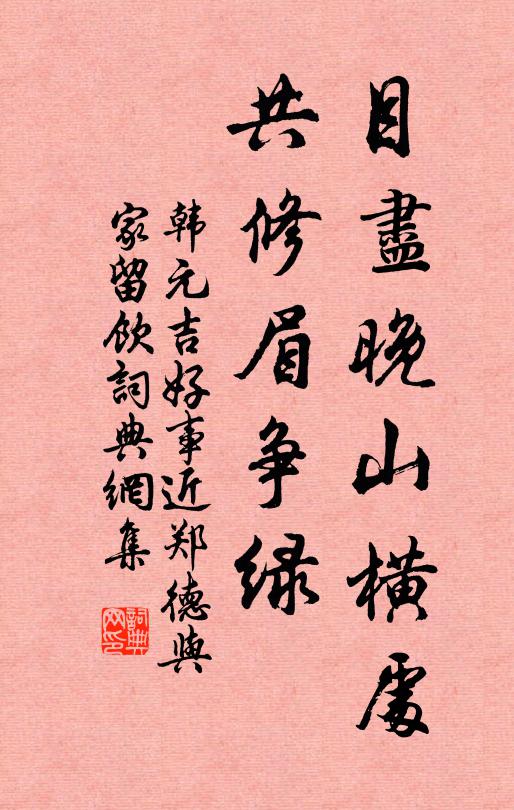 目盡晚山橫處
共修眉争緑
韩元吉好事近郑德與
家留飲詞典網集
詞典网印